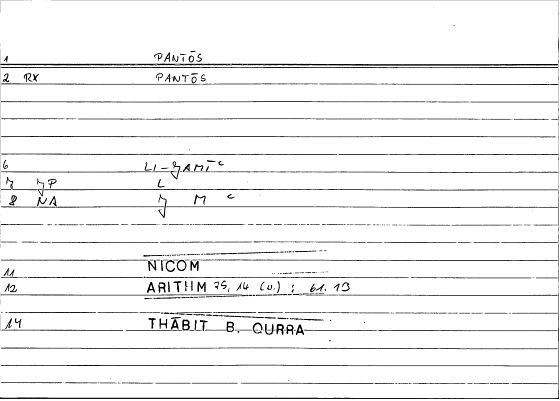 1 PANTŌS
2 RX PANTŌS
6 LI-ǦAMĪʿ
7 ǦP L
8 NA Ǧ M ʿ
11 NICOM
12 ARITHM 75, 14 (u.) ; 61. 13
14 THĀBIT B. QURRA